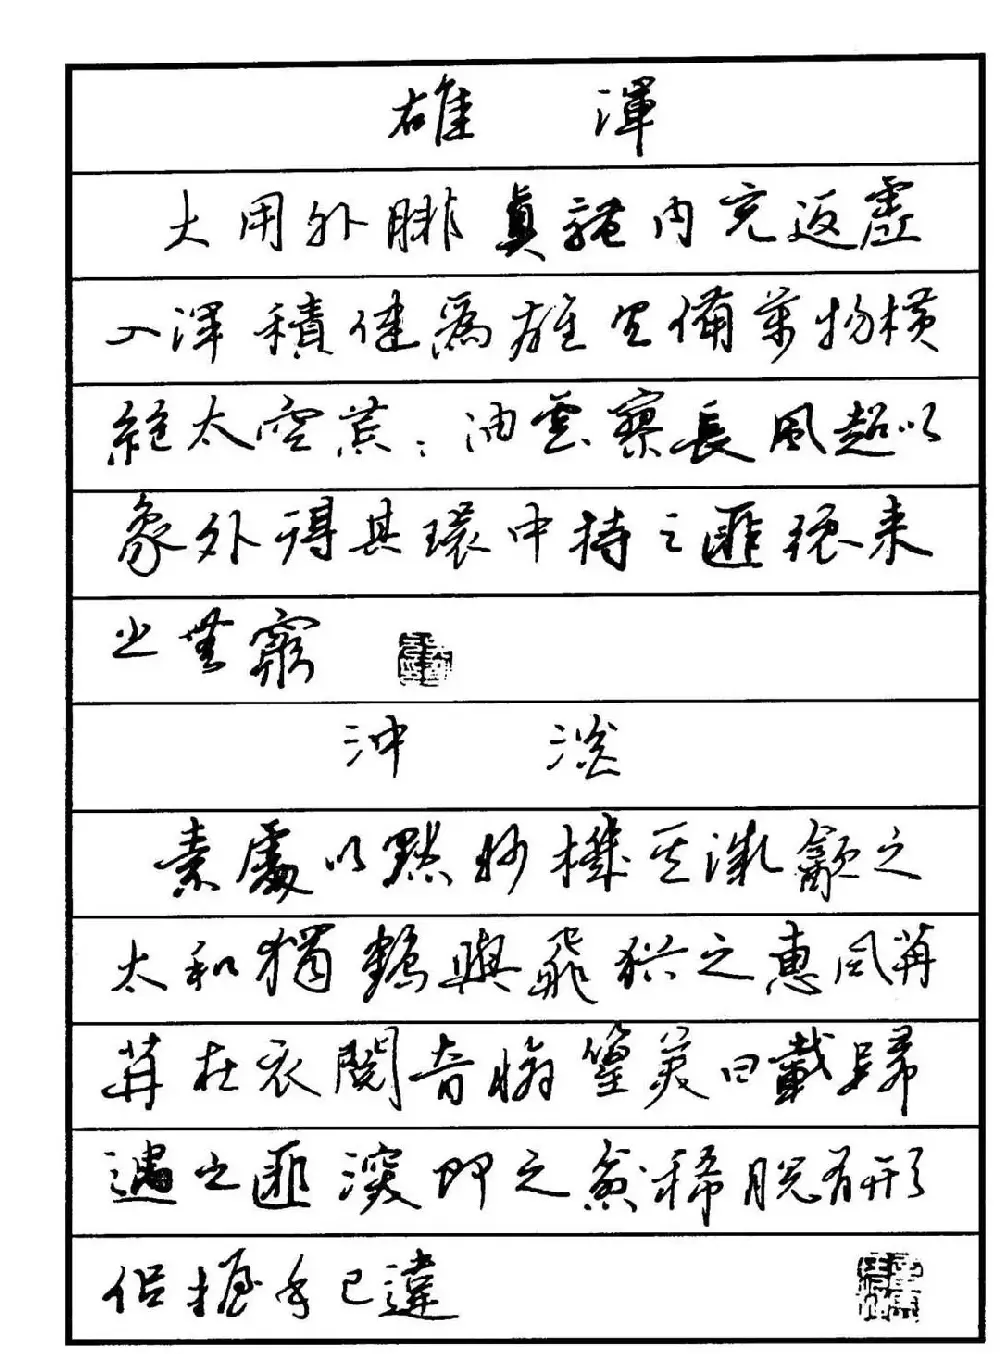 雄渾
大用外腓真體內充返虛
入渾積健為雄具備萬物橫
絕太空荒：油雲寥長風超以
象外得其環中持之匪強來
之無窮
沖淡
素處以默妙機其微飲之
太和獨鶴與飛猶之惠風苒
苒在衣閱音脩篁美曰載歸
遇之匪深即之愈稀脫有形
似握手已違